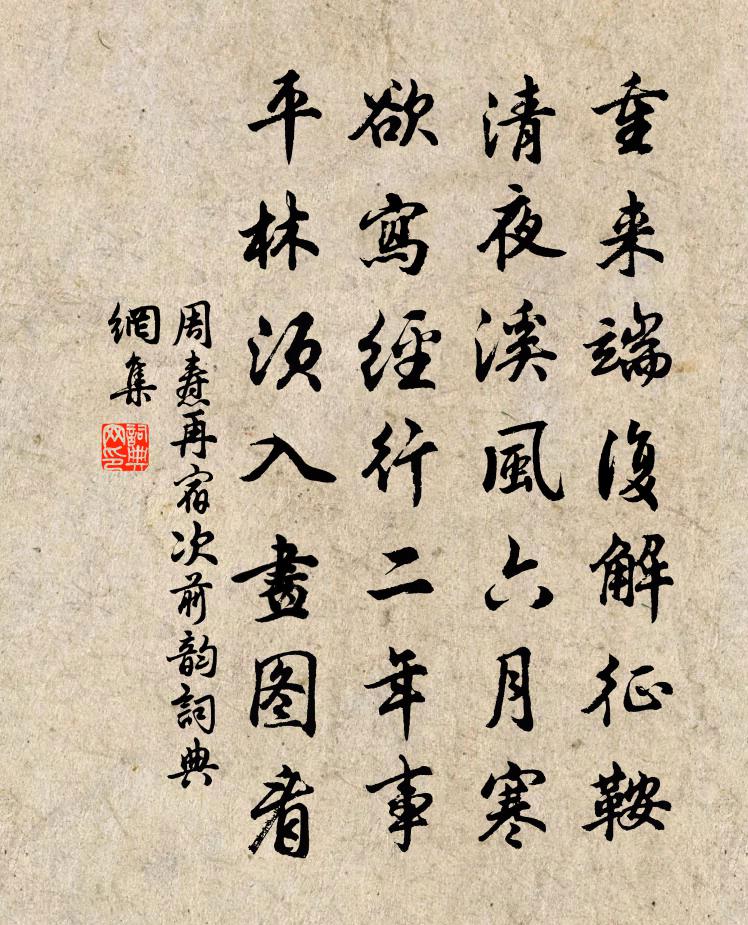 重来端復解征鞍
清夜溪風六月寒
欲寫經行二年事
平林須入畫图看
周燾再宿次前韵詞典
網集
詞典網印